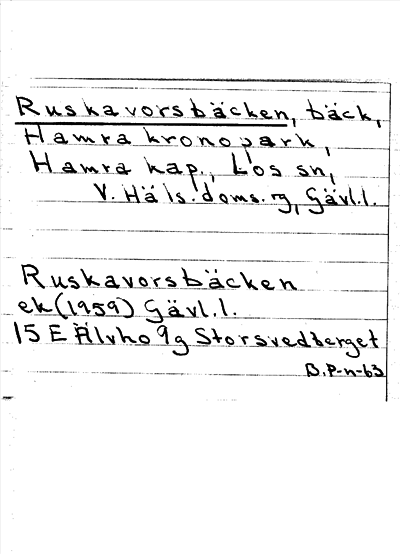 Ruskavorsbäcken, bäck,
Hamra kronopark,
Hamra kap., Los sn,
V. Häls. doms. rg, Gävl.l.
Ruskavorsbäcken
ek (1959) Gävl.l.
15 E Älvho 9g Storsvedberget
B.P-n-63